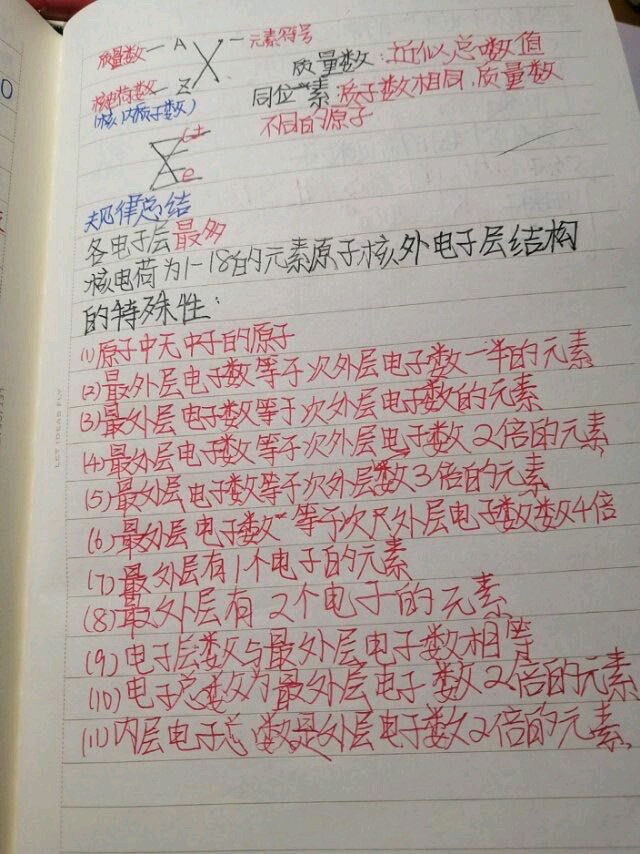 质量数 — A X — 元素符号
质量数:近似总数值
核电荷数 — Z
(核内质子数)
同位素:质子数相同,质量数
不同的原子
规律总结
各电子层最多
核电荷为1-18的元素原子核外电子层结构
的特殊性:
(1)原子中无中子的原子
(2)最外层电子数等于次外层电子数一半的元素
(3)最外层电子数等于次外层电子数的元素
(4)最外层电子数等于次外层电子数2倍的元素
(5)最外层电子数等于次外层数3倍的元素
(6)最外层电子数等于次尺外层电子数数4倍
(7)最外层有1个电子的元素
(8)最外层有2个电子的元素
(9)电子层数与最外层电子数相等
(10)电子总数为最外层电子数2倍的元素
(11)内层电子总数是外层电子数2倍的元素
LET IDEAS FLY